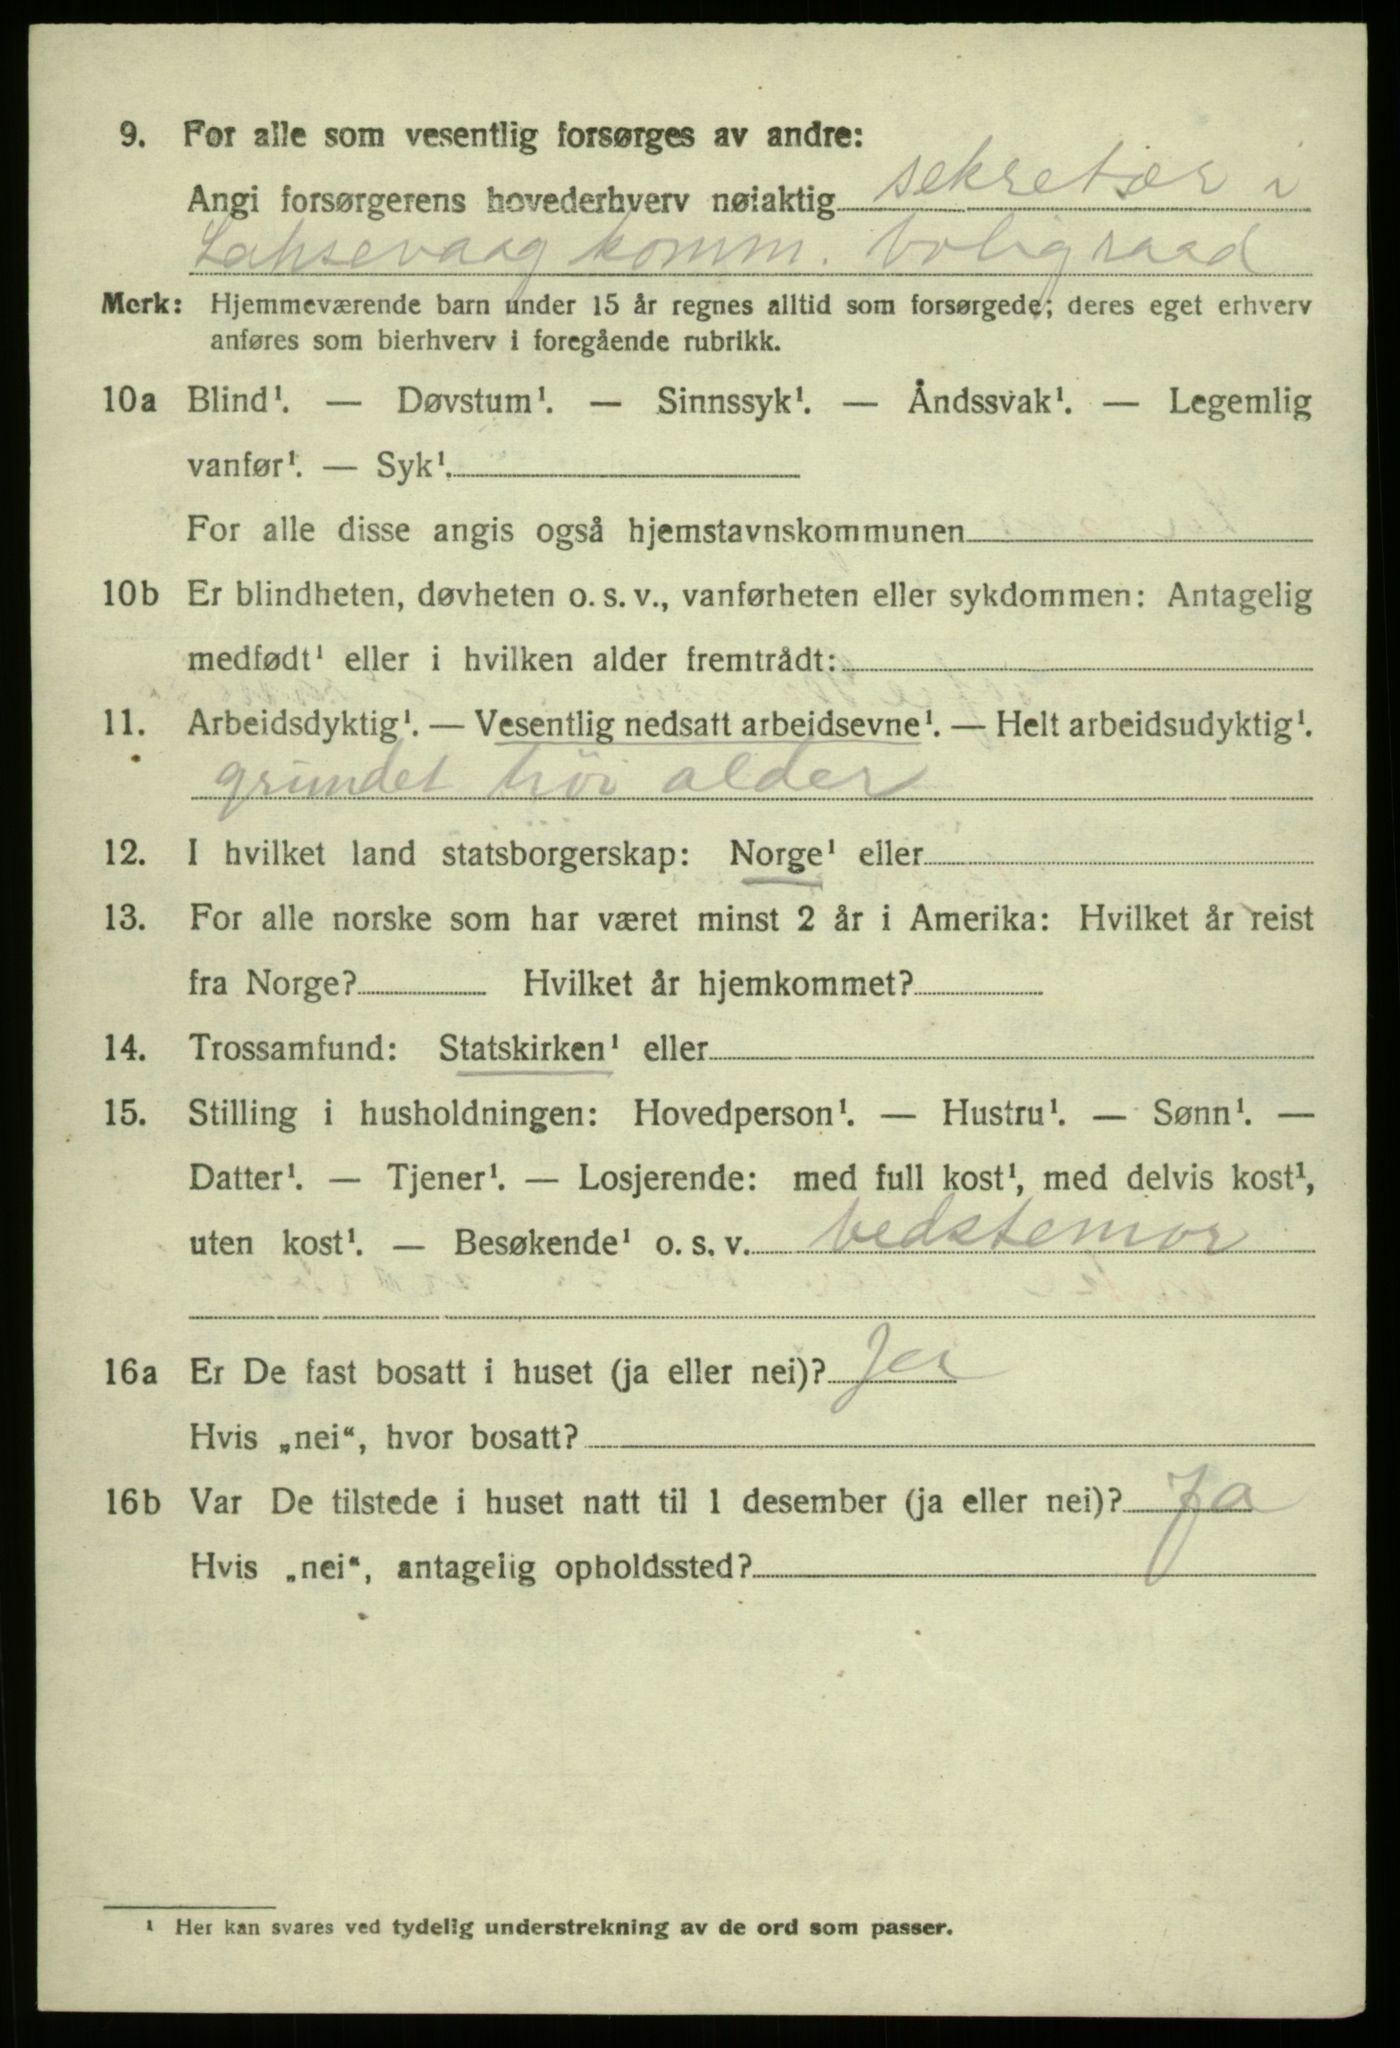 9. For alle som vesentlig forsørges av andre:
Angi forsørgerens hovederhverv nøiaktig sekretær i
Laksevaag komm. boligraad
Merk: Hjemmeværende barn under 15 år regnes alltid som forsørgede; deres eget erhverv
anføres som bierhverv i foregående rubrikk.
10a Blind¹. — Døvstum¹. — Sinnssyk¹. — Åndssvak¹. — Legemlig
vanfør¹. — Syk¹.
For alle disse angis også hjemstavnskommunen
10b Er blindheten, døvheten o. s. v., vanførheten eller sykdommen: Antagelig
medfødt¹ eller i hvilken alder fremtrådt:
11. Arbeidsdyktig¹. — Vesentlig nedsatt arbeidsevne¹. — Helt arbeidsudyktig¹.
grundet høi alder
12. I hvilket land statsborgerskap: Norge¹ eller
13. For alle norske som har været minst 2 år i Amerika: Hvilket år reist
fra Norge? Hvilket år hjemkommet?
14. Trossamfund: Statskirken¹ eller
15. Stilling i husholdningen: Hovedperson¹. — Hustru¹. — Sønn¹. —
Datter¹. — Tjener¹. — Losjerende: med full kost¹, med delvis kost¹,
uten kost¹. — Besøkende¹ o. s. v. bedstemor
16a Er De fast bosatt i huset (ja eller nei)? Ja
Hvis „nei“, hvor bosatt?
16b Var De tilstede i huset natt til 1 desember (ja eller nei)? Ja
Hvis „nei“, antagelig opholdssted?
¹ Her kan svares ved tydelig understrekning av de ord som passer.